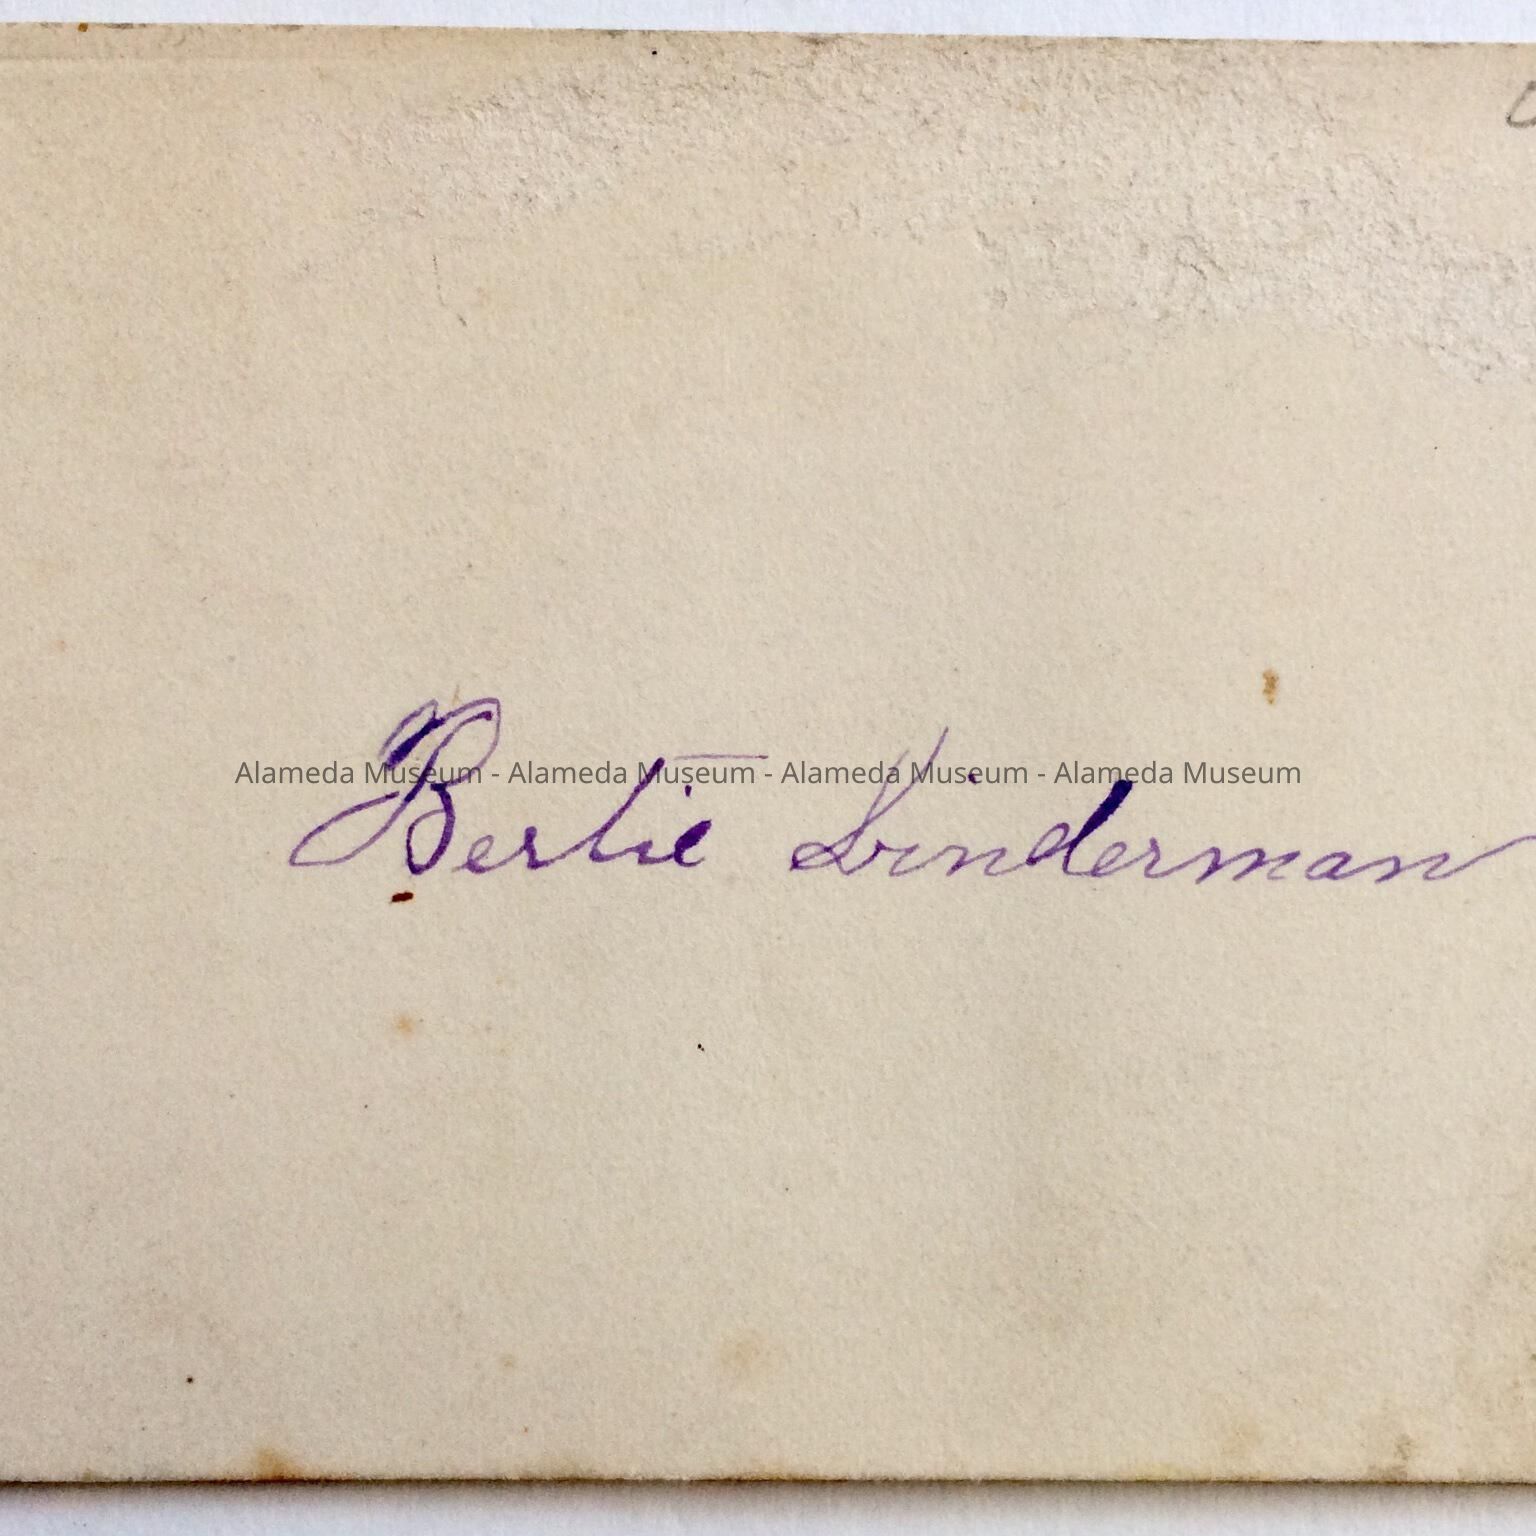 Alameda Museum - Alameda Museum - Alameda Museum - Alameda Museum
Bertie Linderman